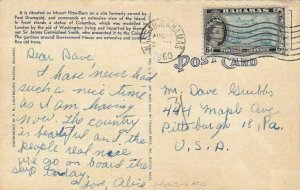 It is situated on Mount Fitzwilliam on a site formerly owned by
Paul Grampald, and commands an extensive view of the island.
In front stands a statue of Columbus, which was modelled in
London by aid of Washington Irving and imported by Governor
Sir James Carmichael Smith, who presented it to the Colony.
The gardens around Government House are extensive and contain
fine old trees.
Dear Dave
I have never had
such a nice time
as I am having
now. The country
is beautiful and the
people real nice
We go on board the
ship today.
Love, Alice
NASSAU BAHAMAS
1960
BAHAMAS
6d
POST CARD
Mr. Dave Grubbs
444 Maple Ave
Pittsburgh 18, Pa.
U.S.A.